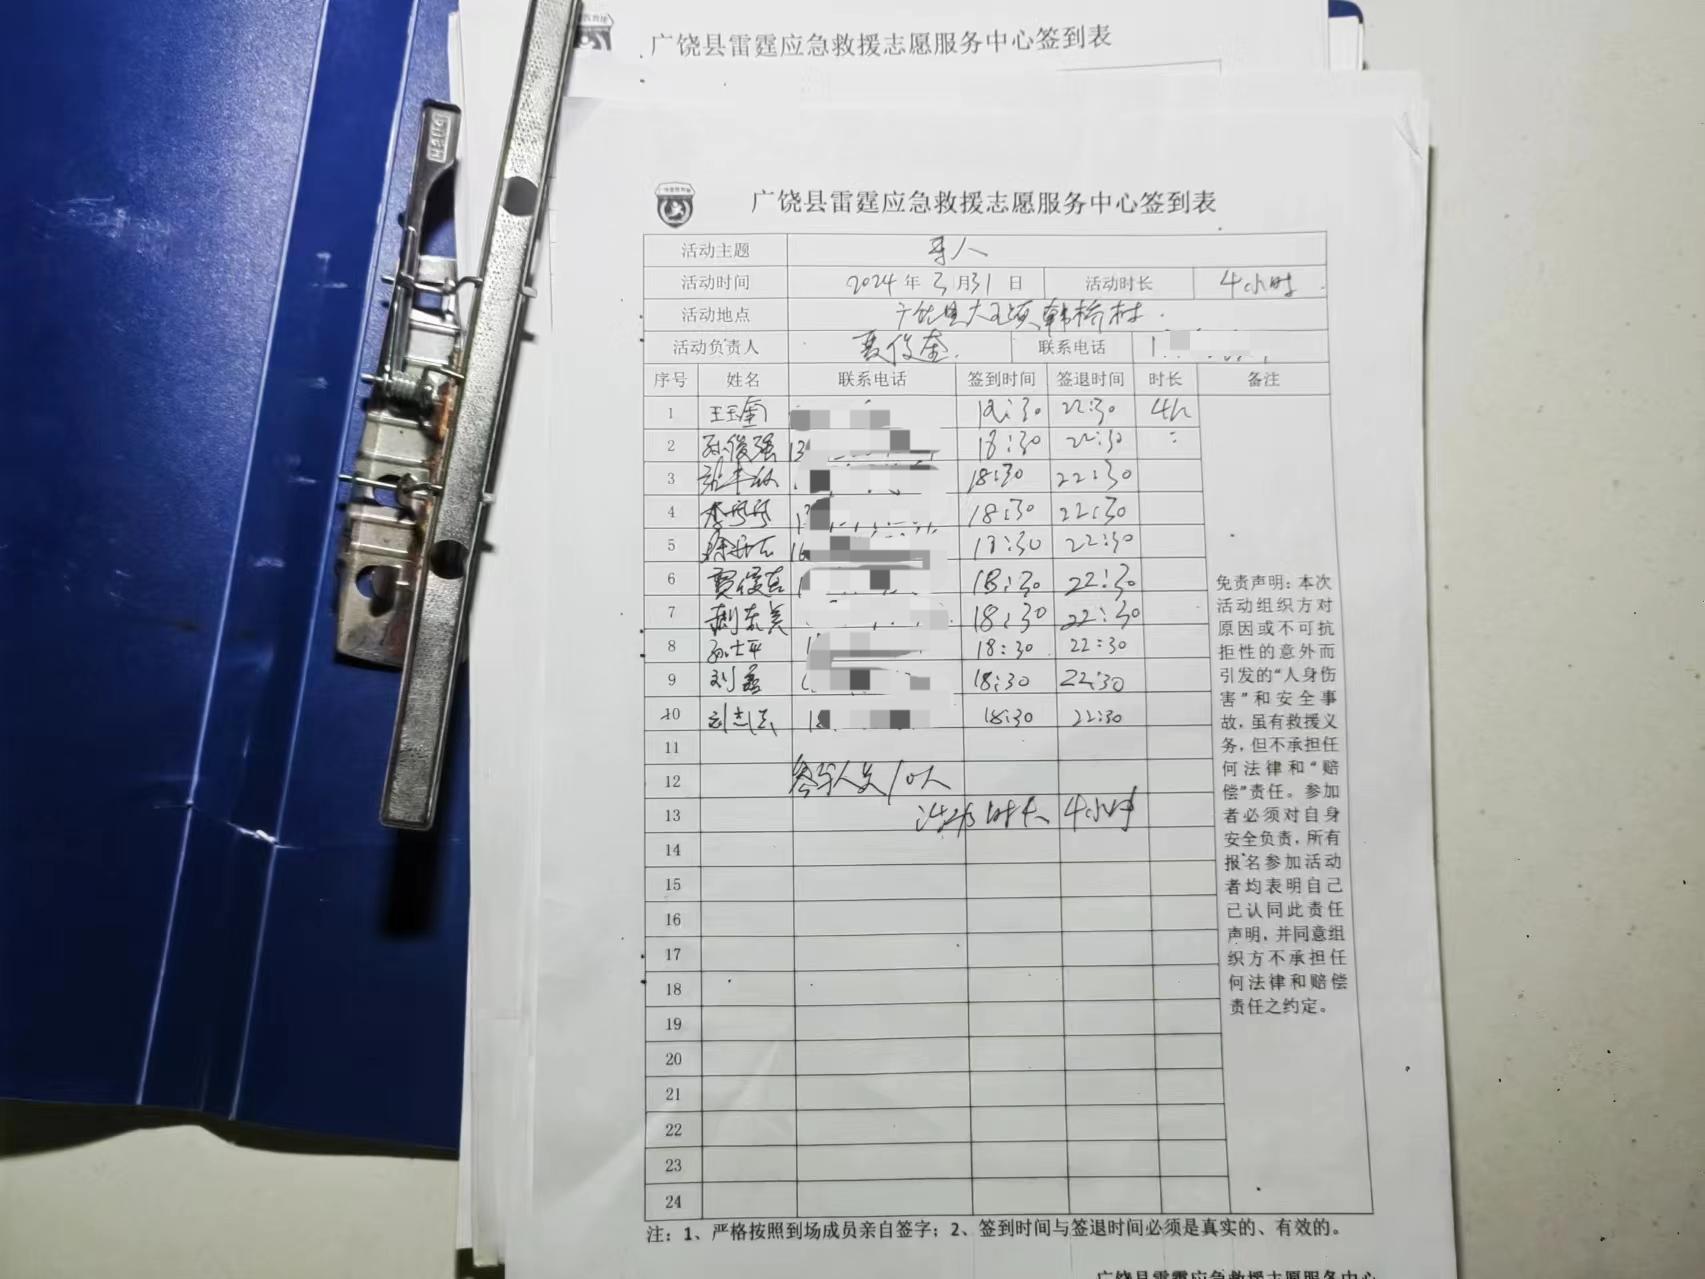 广饶县雷霆应急救援志愿服务中心签到表
广饶县雷霆应急救援志愿服务中心签到表
活动主题 寻人
活动时间 2024年3月31日 活动时长 4小时
活动地点 广饶县大王镇韩桥村
活动负责人 聂俊奎 联系电话 1
序号 姓名 联系电话 签到时间 签退时间 时长 备注
1 18:30 22:30 4h
2 孙俊强 13 18:30 22:30
3 18:30 22:30
4 李彤彤 18:30 22:30
5 16 18:30 22:30
6 贾俊吉 1 18:30 22:30
7 18:30 22:30
8 孙士平 1 18:30 22:30
9 刘磊 18:30 22:30
10 刘志 18 18:30 22:30
11
12 参与人员10人
13 活动时长 4小时
14
15
16
17
18
19
20
21
22
23
24
免责声明：本次
活动组织方对
原因或不可抗
拒性的意外而
引发的“人身伤
害”和安全事
故，虽有救援义
务，但不承担任
何法律和“赔
偿”责任。参加
者必须对自身
安全负责，所有
报名参加活动
者均表明自己
已认同此责任
声明，并同意组
织方不承担任
何法律和赔偿
责任之约定。
注：1、严格按照到场成员亲自签字；2、签到时间与签退时间必须是真实的、有效的。
广饶县雷霆应急救援志愿服务中心